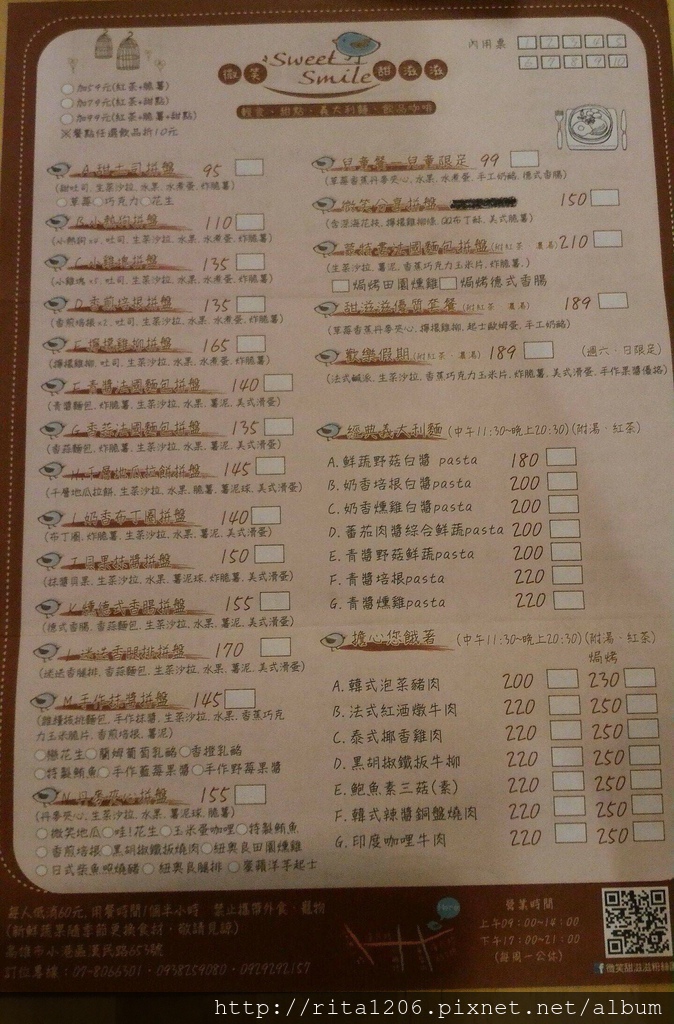 Sweet
Smile
微笑 甜滋滋
輕食．甜點．義大利麵．飲品咖啡
內用票 1 2 3 4 5
6 7 8 9 10
加54元(紅茶+脆薯)
加74元(紅茶+甜點)
加94元(紅茶+脆薯+甜點)
※餐點任選飲品折10元
A.甜土司拼盤 95
(甜吐司, 生菜沙拉, 水果, 水煮蛋, 炸脆薯)
草莓 巧克力 花生
B.小熱狗拼盤 110
(小熱狗x2, 吐司, 生菜沙拉, 水果, 水煮蛋, 炸脆薯)
C.小雞塊拼盤 135
(小雞塊x5, 吐司, 生菜沙拉, 水果, 水煮蛋, 炸脆薯)
D.香煎培根拼盤 135
(香煎培根x2, 吐司, 生菜沙拉, 水果, 水煮蛋, 炸脆薯)
E.檸檬雞柳拼盤 165
(檸檬雞柳, 吐司, 生菜沙拉, 水果, 水煮蛋, 炸脆薯)
F.青醬法國麵包拼盤 140
(青醬麵包, 炸脆薯, 生菜沙拉, 水果, 薯泥, 美式滑蛋)
G.香蒜法國麵包拼盤 135
(香蒜麵包, 炸脆薯, 生菜沙拉, 水果, 薯泥, 美式滑蛋)
H.千層地瓜拉餅拼盤 145
(千層地瓜拉餅, 生菜沙拉, 水果, 脆薯, 薯泥球, 美式滑蛋)
I.奶香布丁圈拼盤 140
(布丁圈, 炸脆薯, 生菜沙拉, 水果, 薯泥, 美式滑蛋)
J.貝果抹醬拼盤 150
(抹醬貝果, 生菜沙拉, 水果, 薯泥球, 炸脆薯, 美式滑蛋)
K.燻德式香腸拼盤 155
(德式香腸, 香蒜麵包, 生菜沙拉, 水果, 薯泥, 美式滑蛋)
L.迷迭香腿排拼盤 170
(迷迭香腿排, 香蒜麵包, 生菜沙拉, 水果, 薯泥, 美式滑蛋)
M.手作抹醬拼盤 145
(雜糧核桃麵包, 手作抹醬, 生菜沙拉, 水果, 香蕉巧克
力玉米脆片, 香煎培根, 薯泥)
戀花生 蘭姆葡萄乳酪 香橙乳酪
特製鮪魚 手作藍莓果醬 手作野莓果醬
N.丹麥夾心拼盤 155
(丹麥夾心, 生菜沙拉, 水果, 薯泥球, 脆薯)
微笑地瓜 哇!花生 玉米蛋咖哩 特製鮪魚
香煎培根 黑胡椒鐵板燒肉 紐奧良田園燻雞
日式柴魚照燒豬 紐奧良腿排 蜜蘋洋芋起士
兒童餐—兒童限定 99
(草莓香蕉丹麥夾心, 水果, 水煮蛋, 手工奶酪, 德式香腸)
微笑分享拼盤 150
(含深海花枝, 檸檬雞柳條, QQ布丁酥, 美式脆薯)
(附紅茶．農湯) 210
(生菜沙拉, 薯泥, 香蕉巧克力玉米片, 炸脆薯,)
焗烤田園燻雞 焗烤德式香腸
甜滋滋優質套餐(附紅茶．農湯) 189
(草莓香蕉丹麥夾心, 檸檬雞柳, 起士歐姆蛋, 手工奶酪)
歡樂假期(附紅茶．濃湯) 189 (週六、日限定)
(法式鹹派, 生菜沙拉, 香蕉巧克力玉米片, 炸脆薯, 美式滑蛋, 手作果醬優格)
經典義大利麵(中午11:30~晚上20:30)(附湯．紅茶)
A.鮮蔬野菇白醬 pasta 180
B.奶香培根白醬pasta 200
C.奶香燻雞白醬pasta 200
D.蕃茄肉醬綜合鮮蔬pasta 200
E.青醬野菇鮮蔬pasta 200
F.青醬培根pasta 220
G.青醬燻雞pasta 220
擔心您餓著 (中午11:30~晚上20:30)(附湯．紅茶)
焗烤
A.韓式泡菜豬肉 200 230
B.法式紅酒燉牛肉 220 250
C.泰式椰香雞肉 220 250
D.黑胡椒鐵板牛柳 220 250
E.鮑魚素三菇(素) 220 250
F.韓式辣醬銅盤燒肉 220 250
G.印度咖哩牛肉 220 250
每人低消60元, 用餐時間1個半小時 禁止攜帶外食．寵物
(新鮮蔬果隨季節更換食材，敬請見諒)
高雄市小港區漢民路653號
訂位專線：07-8066301．0938259080．0929292157
Here
營業時間
上午09：00~14：00
下午17：00~21：00
(每周一公休)
f 微笑甜滋滋粉絲團
http://rita1206.pixnet.net/album